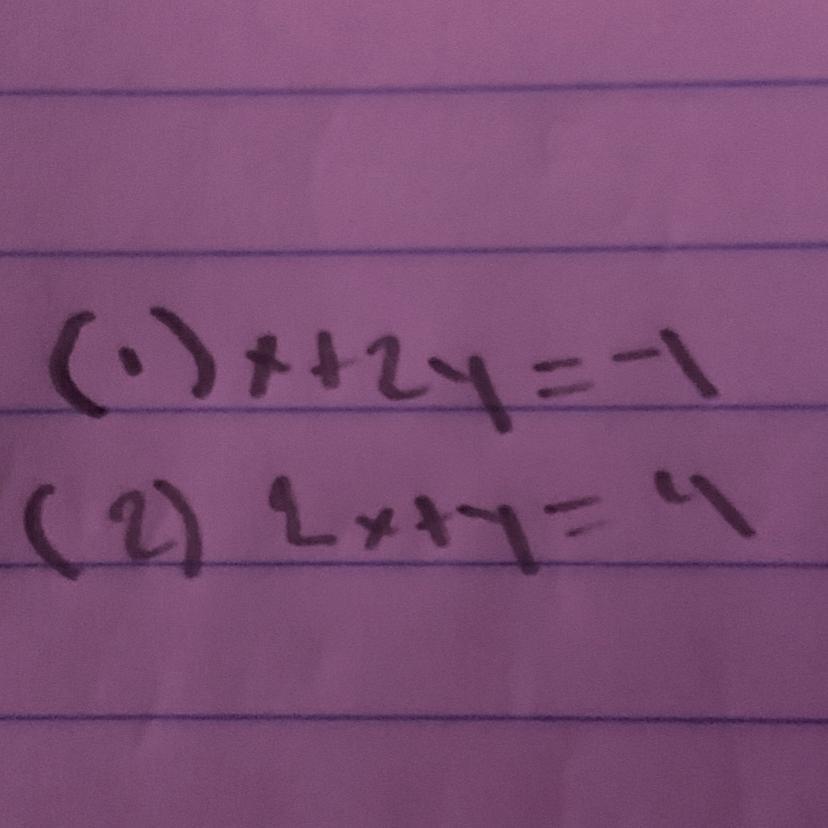 (1) x+2y=-1
(2) 2x+y=4